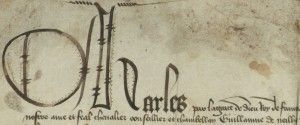 Charles par la grace de dieu Roy de france
nostre ame et feal chevalier conseillier et chambellan Guillaume de